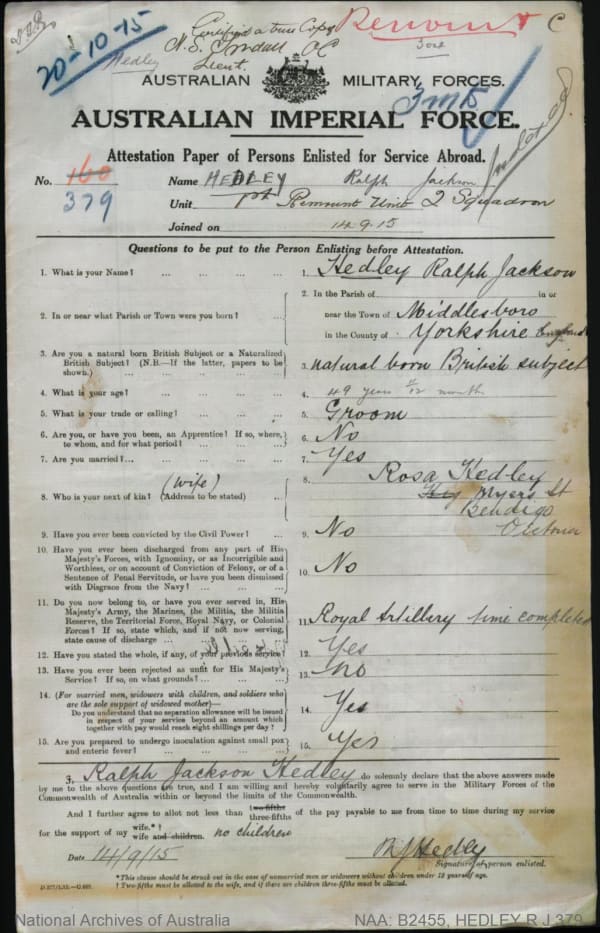 20-10-15
Certified a true Copy
Remount
C
Hedley
Lieut.
OC
AUSTRALIAN MILITARY FORCES.
AUSTRALIAN IMPERIAL FORCE.
Attestation Paper of Persons Enlisted for Service Abroad.
No. 160 Name HEDLEY Ralph Jackson
379 Unit 1st Remount Unit 2 Squadron
Joined on 14.9.15
Questions to be put to the Person Enlisting before Attestation.
1. What is your Name? ... ... ... 1. Hedley Ralph Jackson
2. In or near what Parish or Town were you born? ... 2. In the Parish of in or
near the Town of Middlesboro
in the County of Yorkshire England
3. Are you a natural born British Subject or a Naturalized
British Subject? (N.B.—If the latter, papers to be
shown.) ... ... ... 3. natural born British subject
4. What is your age? ... ... ... 4. 49 years months
5. What is your trade or calling? ... ... ... 5. Groom
6. Are you, or have you been, an Apprentice? If so, where,
to whom, and for what period? ... ... 6. No
7. Are you married?... ... ... 7. Yes
8. Who is your next of kin? (Address to be stated) ... (Wife) 8. Rosa Hedley
Myers St
Bendigo
Victoria
9. Have you ever been convicted by the Civil Power? ... 9. No
10. Have you ever been discharged from any part of His
Majesty's Forces, with Ignominy, or as Incorrigible and
Worthless, or on account of Conviction of Felony, or of a
Sentence of Penal Servitude, or have you been dismissed
with Disgrace from the Navy? ... ... 10. No
11. Do you now belong to, or have you ever served in, His
Majesty's Army, the Marines, the Militia, the Militia
Reserve, the Territorial Force, Royal Navy, or Colonial
Forces? If so, state which, and if not now serving,
state cause of discharge ... ... 11. Royal Artillery time completed
12. Have you stated the whole, if any, of your previous service? 12. Yes
13. Have you ever been rejected as unfit for His Majesty's
Service? If so, on what grounds? ... ... 13. No
14. (For married men, widowers with children, and soldiers who
are the sole support of widowed mother)—
Do you understand that no separation allowance will be issued
in respect of your service beyond an amount which
together with pay would reach eight shillings per day? 14. Yes
15. Are you prepared to undergo inoculation against small pox
and enteric fever? ... ... ... 15. Yes
I, Ralph Jackson Hedley do solemnly declare that the above answers made
by me to the above questions are true, and I am willing and hereby voluntarily agree to serve in the Military Forces of the
Commonwealth of Australia within or beyond the limits of the Commonwealth.
And I further agree to allot not less than two-fifths
three-fifths of the pay payable to me from time to time during my service
for the support of my wife.*†
wife and children. no children
Date 14/9/15 R J Hedley
Signature of person enlisted.
*This clause should be struck out in the case of unmarried men or widowers without children under 18 years of age.
† Two-fifths must be allotted to the wife, and if there are children three-fifths must be allotted.
National Archives of Australia NAA: B2455, HEDLEY R J 379